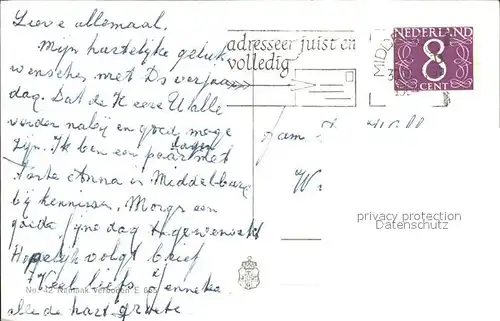 Lieve allemaal.
Mijn hartelijke geluk
wenschen met Ds verjaar
dag. Dat de Heere U alle
verder nabij en goed moge
zijn. Ik ben een paar dagen met
Tante Anna in Middelburg
bij kennissen. Morge een
goede fijne dag toegewenscht
Hopelijk volgt brief
Veel liefs
alle de hart. groete
adresseer juist en
volledig
MIDD
NEDERLAND
8
CENT
Fam
W
privacy protection
Datenschutz
No. 42 Nomaak Verboden E 6